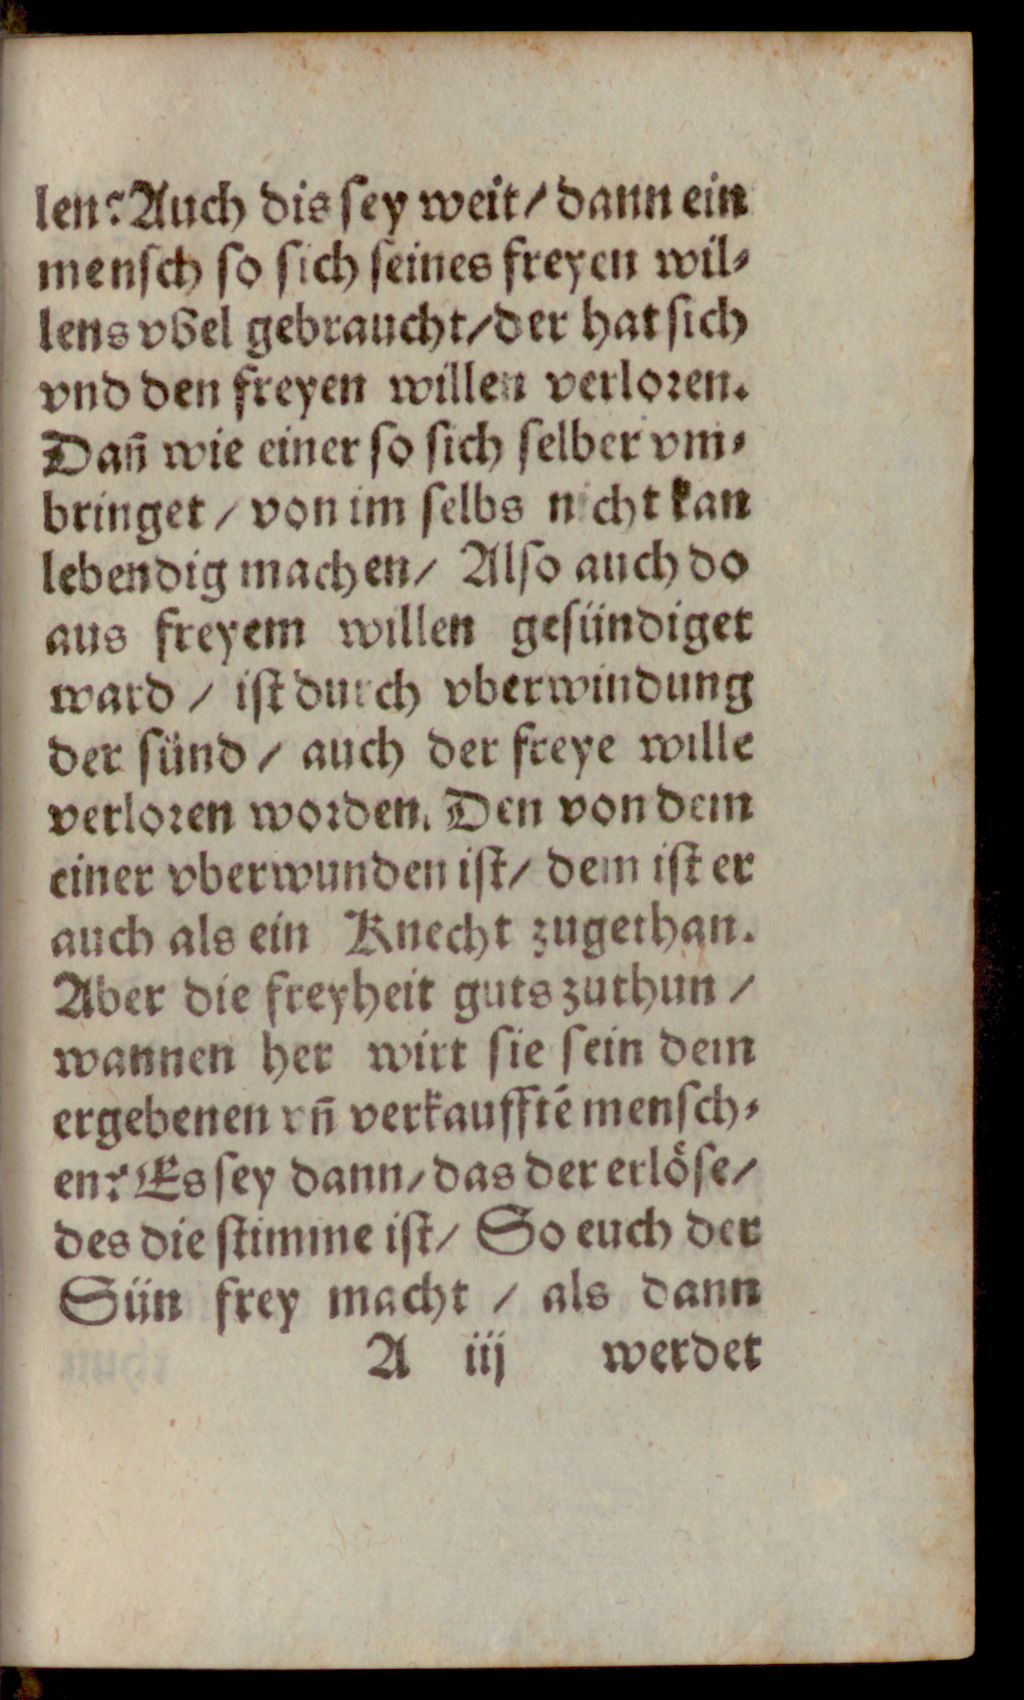 len? Auch dis sey weit / dann ein
mensch so sich seines freyen wil-
lens vbel gebraucht / der hat sich
vnd den freyen willen verloren.
Dañ wie einer so sich selber vm-
bringet / von im selbs nicht kan
lebendig machen / Also auch do
aus freyem willen gesündiget
ward / ist durch vberwindung
der sünd / auch der freye wille
verloren worden. Den von dem
einer vberwunden ist / dem ist er
auch als ein Knecht zugethan.
Aber die freyheit guts zuthun /
wannen her wirt sie sein dem
ergebenen vñ verkaufftē mensch-
en? Es sey dann / das der erlöse /
des die stimme ist / So euch der
Sün frey macht / als dann
A iij werdet